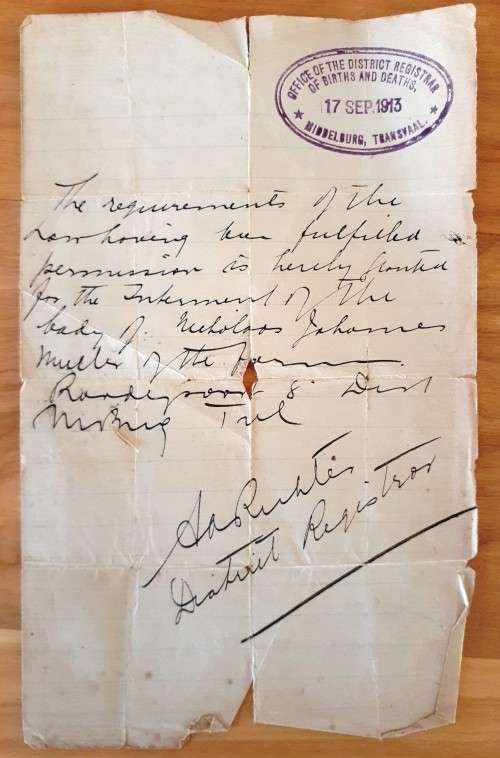 OFFICE OF THE DISTRICT REGISTRAR
OF BIRTHS AND DEATHS.
17 SEP. 1913
MIDDELBURG, TRANSVAAL.
The requirements of the
Law having been fulfilled
permission is hereby granted
for the Interment of the
body of. Nicholaas Johannes
Muller of the farm
8 Dist
Mbrg Tvl
Richter
District Registrar